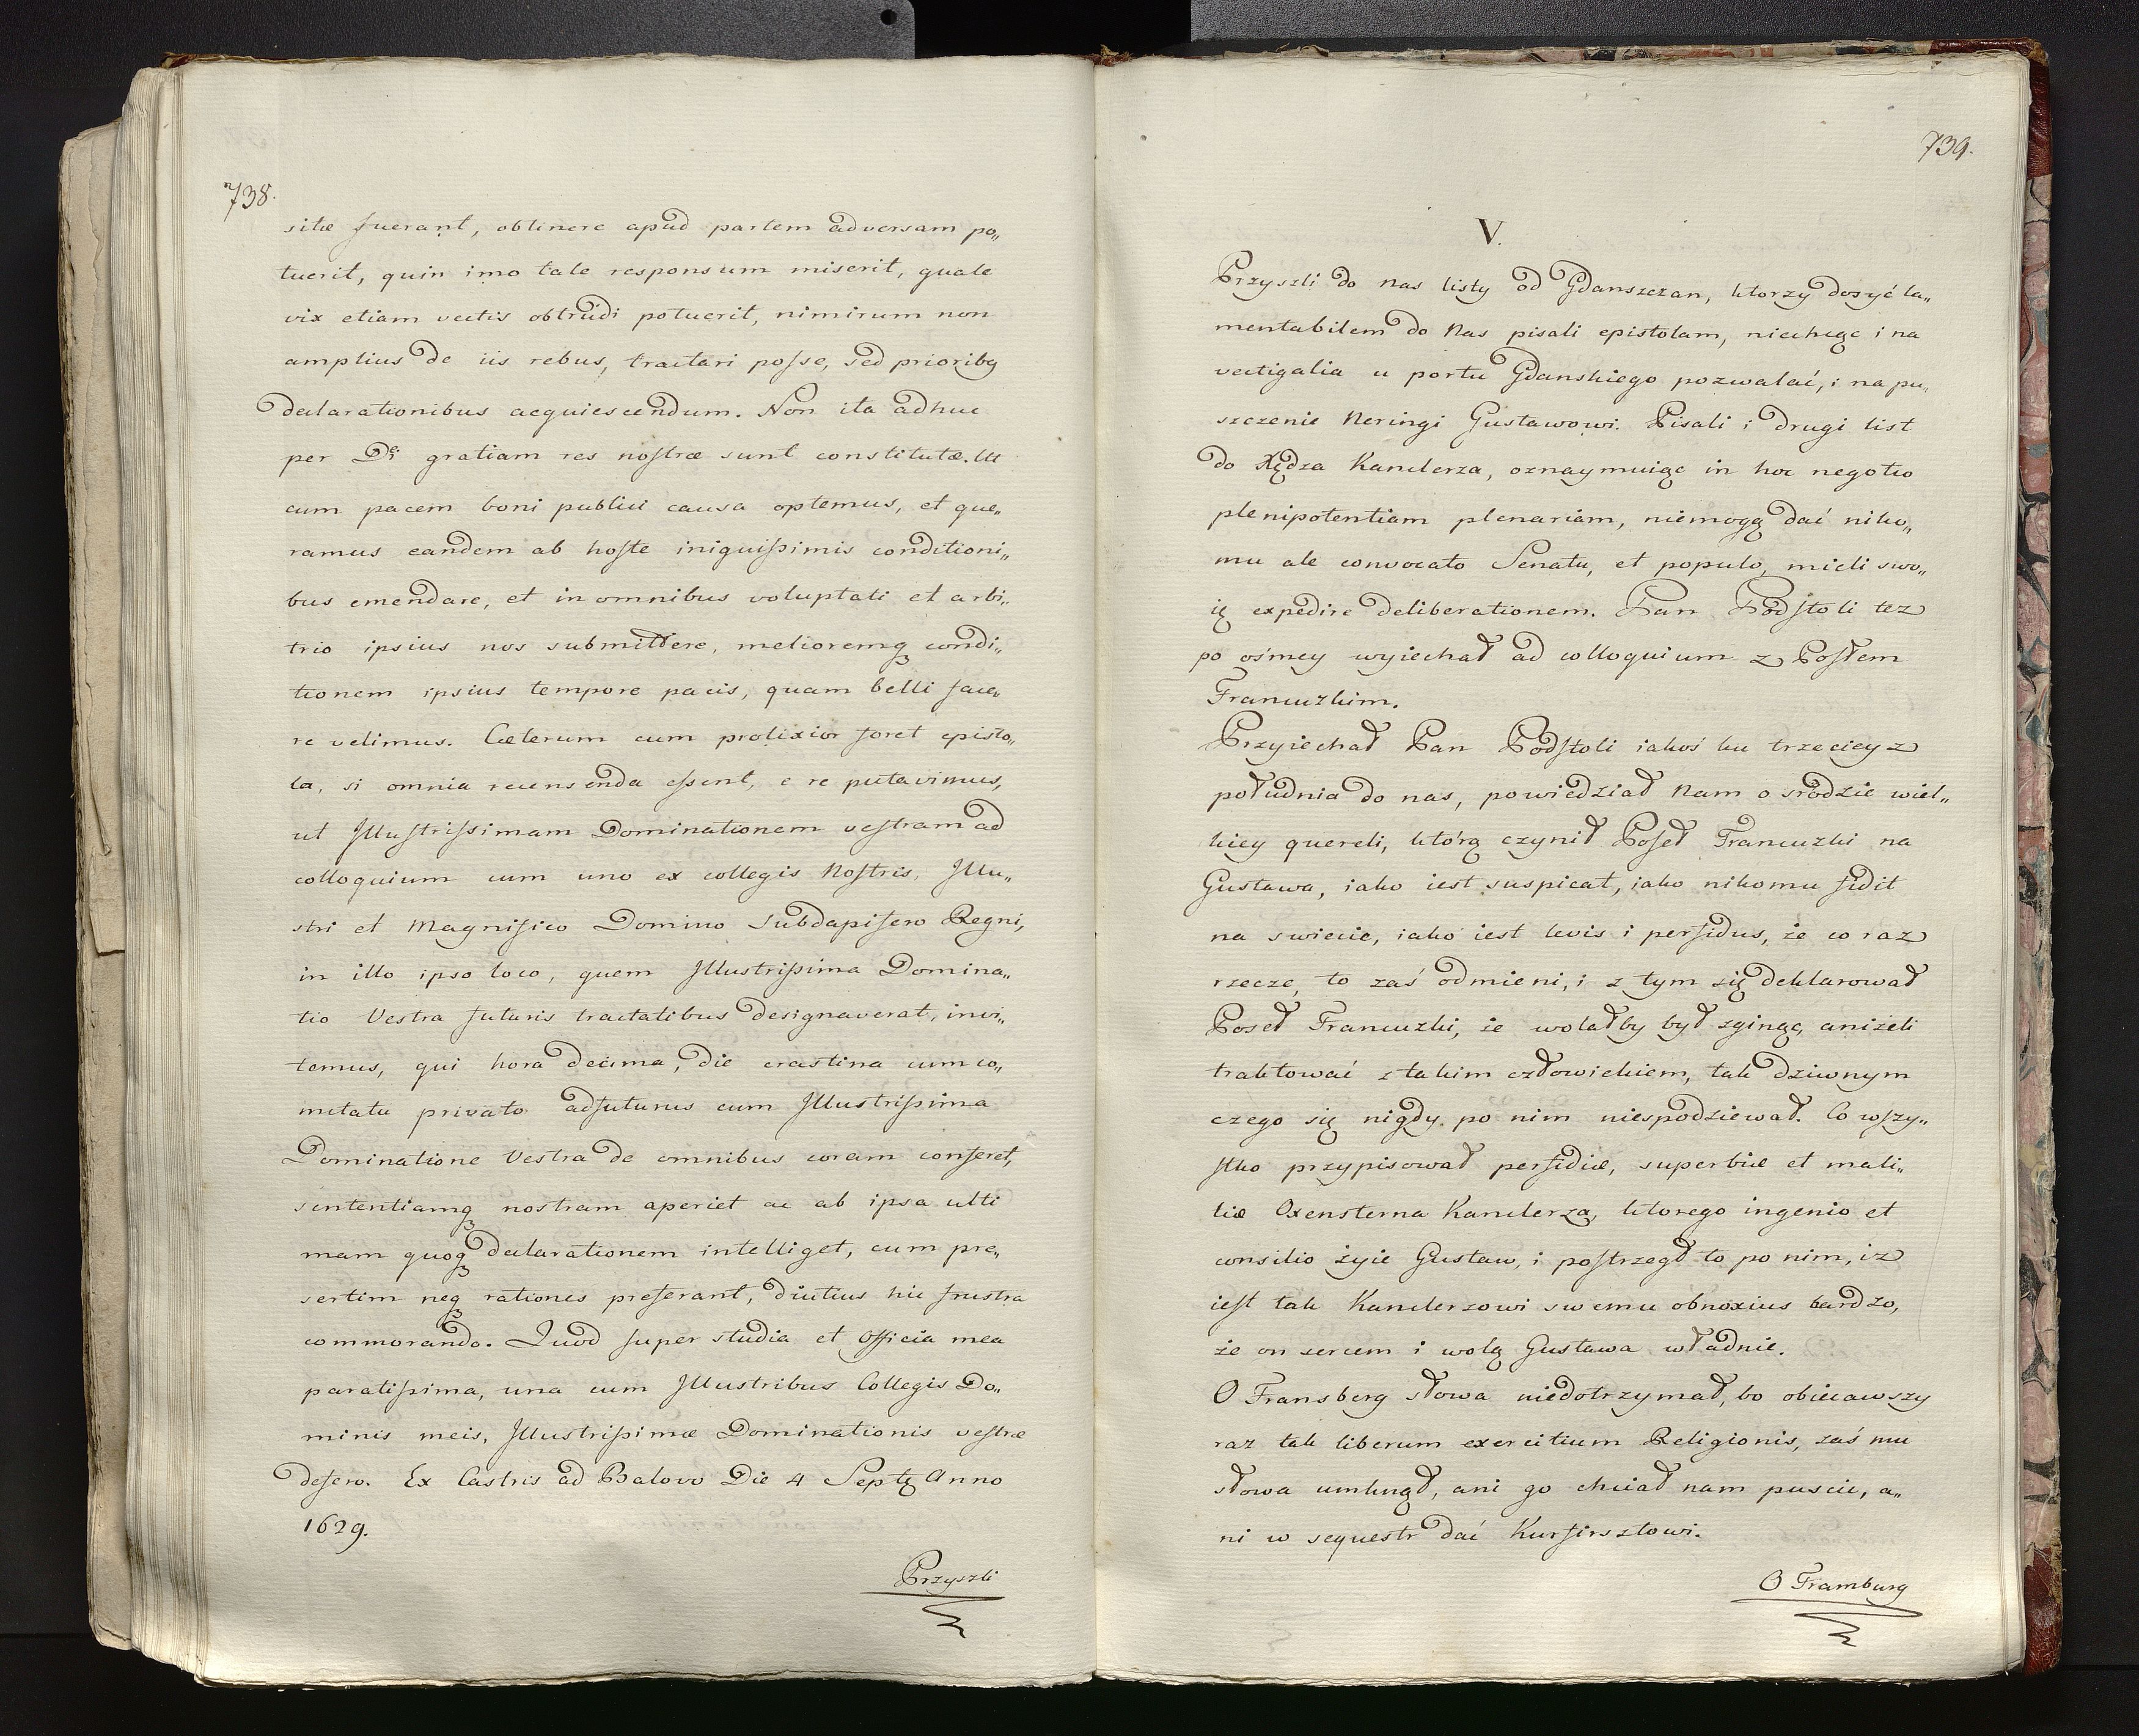 738.
sitæ fuerant, obtinere apud partem adversam po„
tuerit, quin imo tale responsum miserit, quale
vix etiam victis obtrudi potuerit, nimirum non
amplius de iis rebus, tractari poſse, sed prioribꝫ
declarationibus acquiescendum. Non ita adhuc
per Dei gratiam res noſtræ sunt constitutæ. Ut
cum pacem boni publici causa optemus, et quæ„
ramus eandem ab hoſte iniquiſsimis conditioni„
bus emendare, et in omnibus voluptati et arbi„
trio ipsius nos submittere, melioremqꝫ condi„
tionem ipsius tempore pacis, quam belli face„
re velimus. Cæterum cum prolixior foret episto„
la, si omnia recensenda eſsent, e re putavimus,
ut Illuſtriſsimam Dominationem veſtram ad
colloquium cum uno ex collegis Noſtris, Illu„
stri et Magnifico Domino Subdapifero Regni,
in illo ipso loco, quem Illustriſsima Domina„
tio Vestra futuris tractatibus designaverat, invi„
temus, qui hora decima, die crastina cum co„
mitatu privato adfuturus cum Illustriſsima
Dominatione Vestra de omnibus coram conferet,
sententiamqꝫ nostram aperiet ac ab ipsa ulti
mam quoqꝫ declarationem intelliget, cum præ„
sertim neqꝫ rationes præferant, diutius hic frustra
commorando. Quod super studia et officia mea
paratiſsima, una cum Illustribus Collegis Do„
minis meis, Illustriſsimæ Dominationis veſtræ
defero. Ex Castris ad Balovo Die 4 Septꝫ Anno
1629.
Przyszli
739.
V.
Przyszli do nas listy od Gdanszczan, ktorzy dosyć la„
mentabilem do Nas pisali epistolam, niechcąc i na
vectigalia u portu Gdanskiego pozwalać, i na pu„
szczenie Neringi Gustawowi. Pisali i drugi list
do Xędza Kanclerza, oznaymuiąc in hoc negotio
plenipotentiam plenariam, niemogą dać niko„
mu ale convocato Senatu, et populo, mieli swo„
ię expedire deliberationem. Pan Podſtoli tez
po ośmey wyiechał ad colloquium z Poſłem
Francuzkim.
Przyiechał Pan Podſtoli iakoś ku trzeciey z
południa do nas, powiedział Nam o srodzie wiel„
kiey quereli, którą czynił Poſeł Francuzki na
Gustawa, iako iest suspicat, iako nikomu fidit
na swiecie, iako iest levis i perfidus, że co raz
rzecze, to zaś odmieni, i z tym się deklarował
Poseł Francuzki, że wolałby był zginąc, aniżeli
traktować z takim człowiekiem, tak dziwnym
czego się nigdy po nim niespodziewał. Co wſzy„
ſtko przypisował perfidiæ, superbiæ et mali„
tiæ Oxensterna Kanclerza, ktorego ingenio et
consilio żyie Gustaw, i poſtrzegł to po nim, iz
ieſt tak Kanclerzowi swemu obnoxius bardzo,
że on sercem i wolą Gustawa władnie.
O Fransberg słowa niedotrzymał, bo obiecawszy
raz tak liberum exercitium Religionis, zaś mu
słowa umknął, ani go chciał nam puscic, a„
ni w sequestr dać Kurfirsztowi.
O Framburg